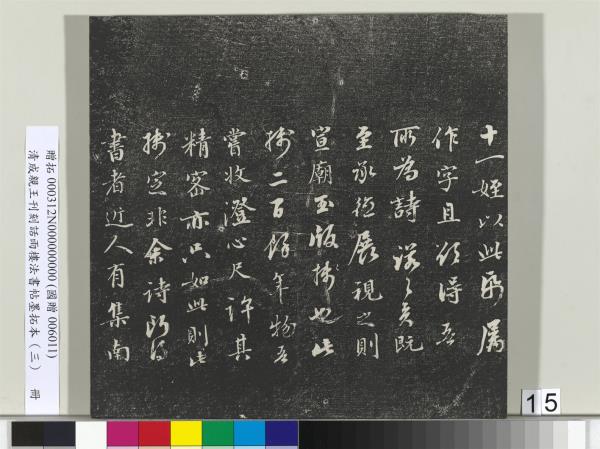 十一姪以此紙屬
作字且欲得吾
所為詩諾之矣既
至承德展視之則
宣廟玉版紙也此
紙二百餘年物吾
嘗收澄心尺許其
精密亦只如此則此
紙定非余詩所
書者近人有集南
贈拓 000312N000000000 (國贈 006011)
清成親王刊刻話雨樓法書帖墨拓本（三） 冊
15